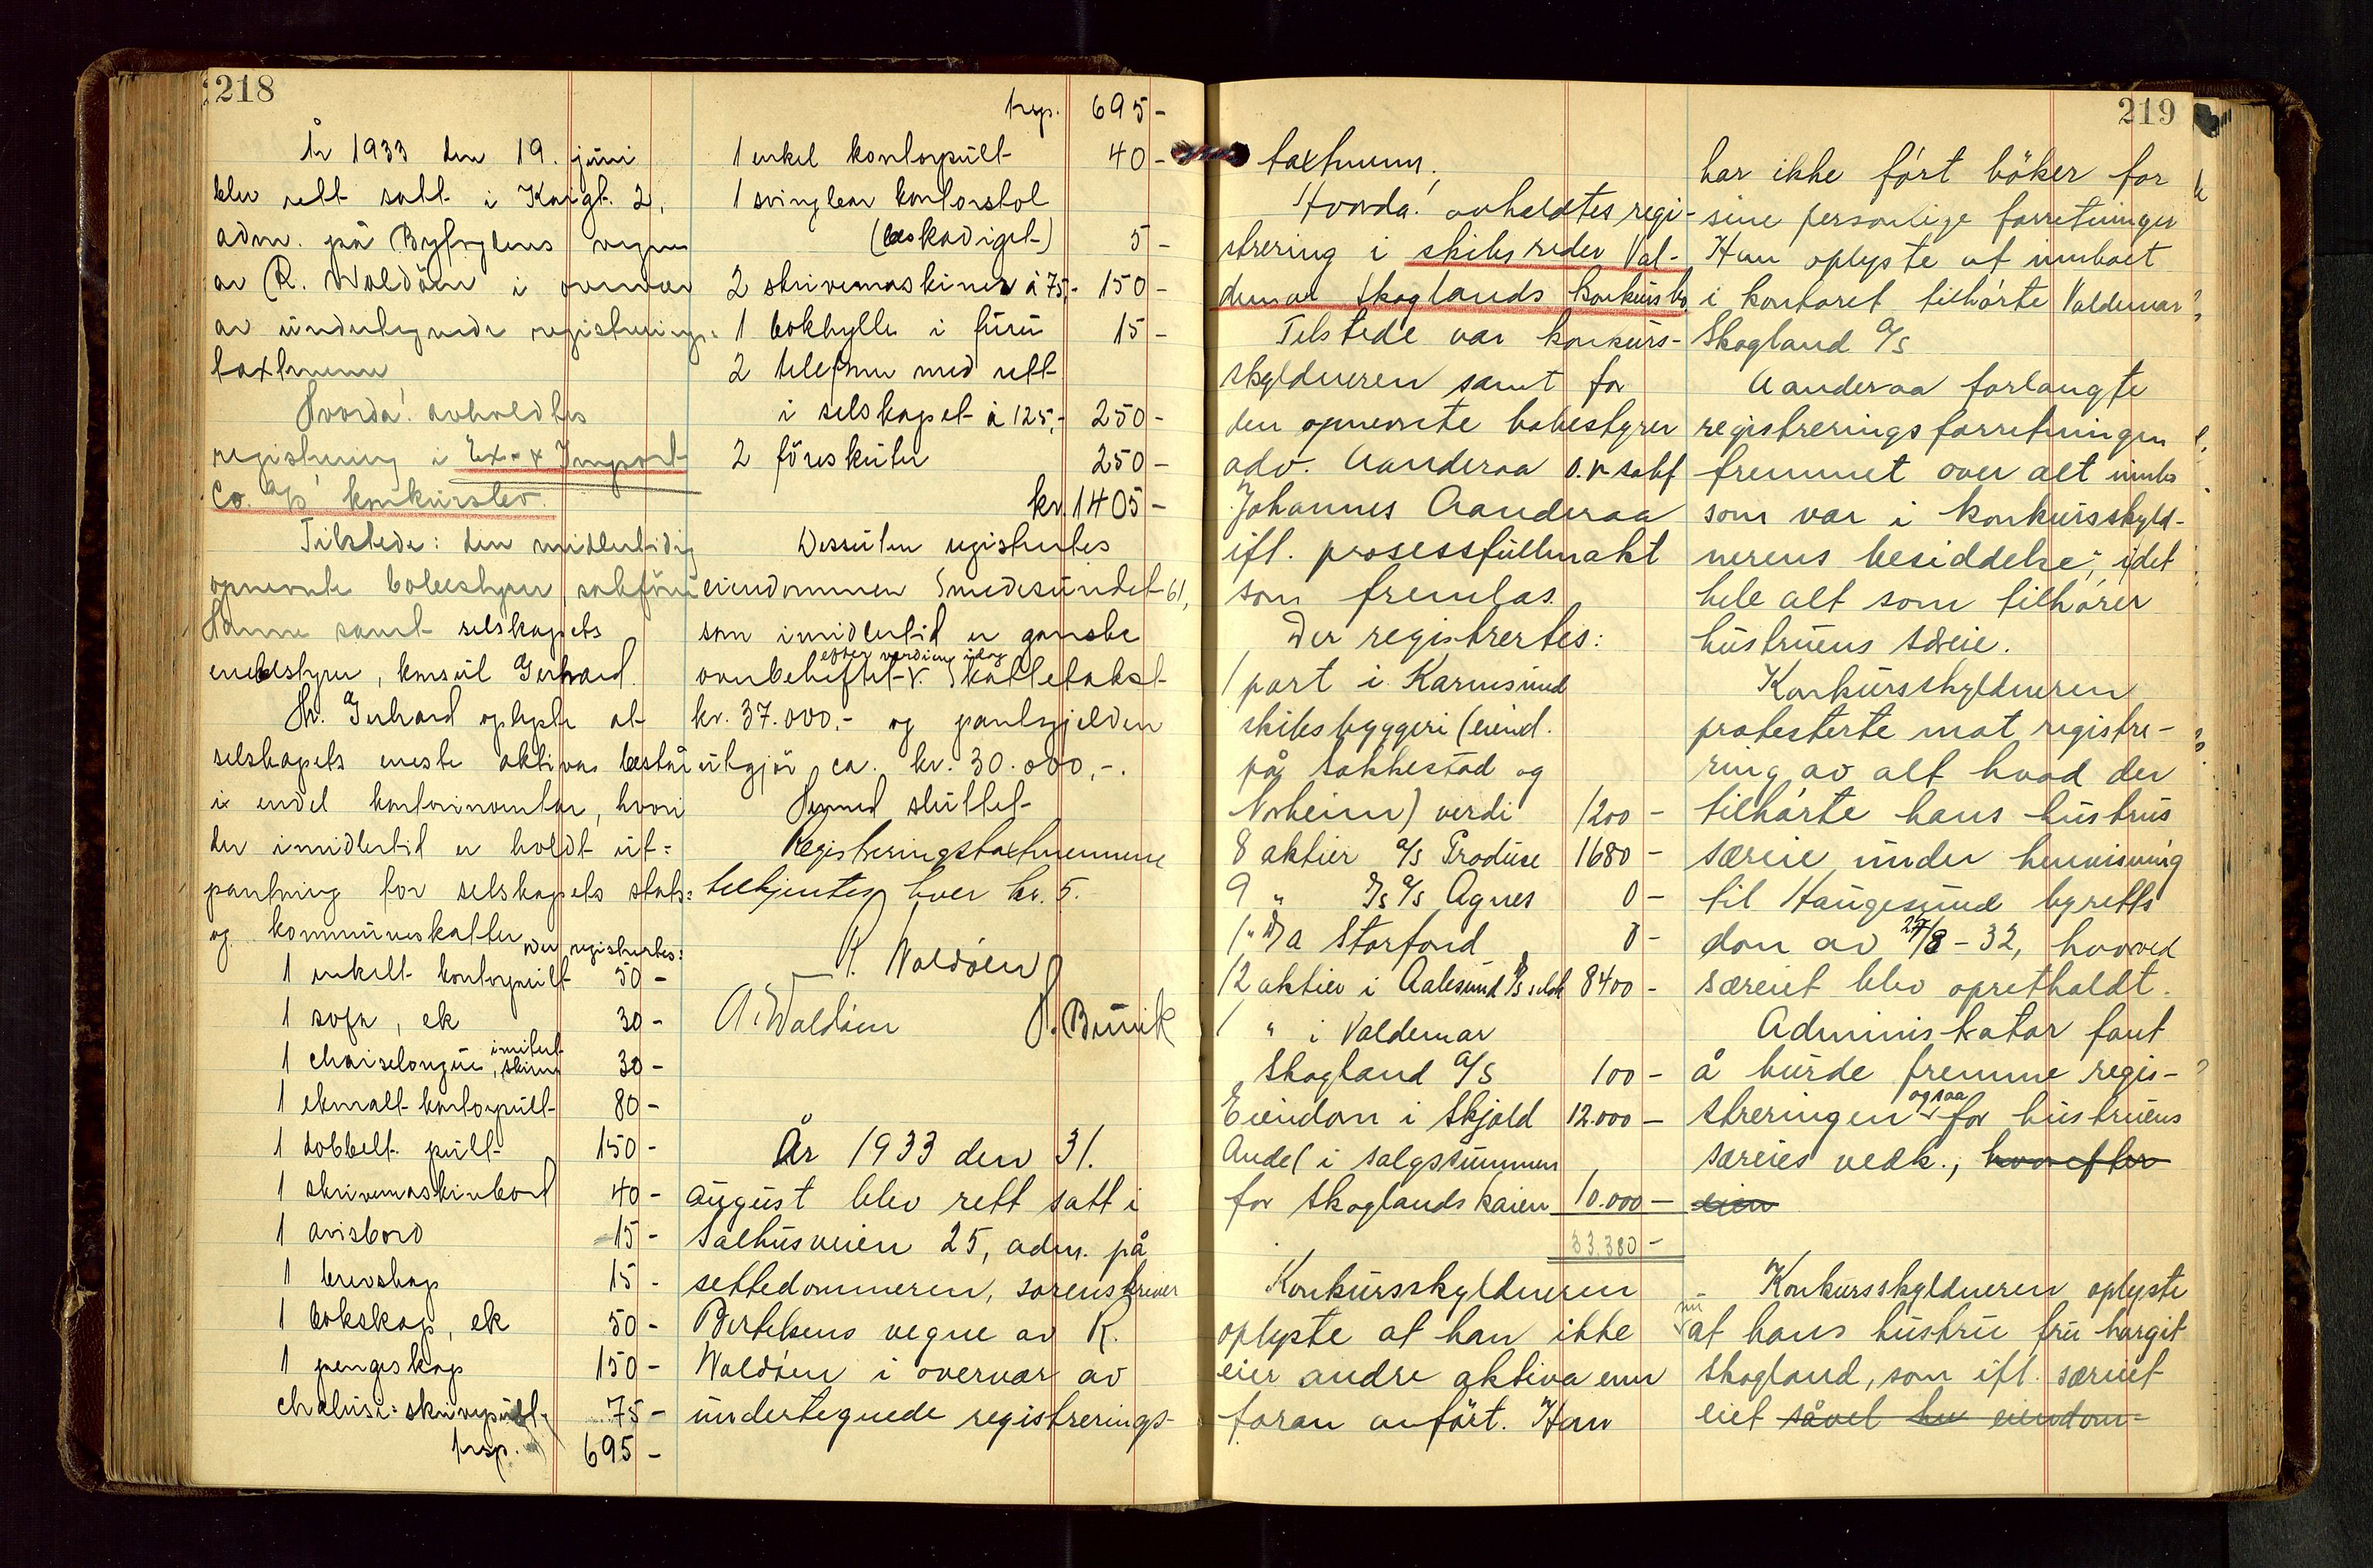 218
År 1933 den 19. juni
blev rett satt i Kaigt. 2,
adm. på Byfogdens vegne
av R. Waldöen i overvær
av undertegnede registrerings=
taxtmenn
Hvorda! avholdtes
registrering i Ex- & Import
Co. A/s' konkursbo.
Tilstede: den midlertidig
opnevnte bobestyrer, sakförer
samt selskapets
enebestyrer, konsul Gerhard.
Hr. Gerhard oplyste at
selskapets eneste aktiva består
i endel kontorinventar, hvori
der imidlertid er holdt ut=
pantning for selskapets stats=
og kommuneskatter. Der registrertes:
1 enkelt kontorpult 50 -
1 sofa, ek 30 -
1 chaiselongue, imitert skinn 30 -
1 ekmalt kontorpult 80 -
1 dobbelt pult 150 -
1 skrivemaskinbord 40 -
1 avisbord 15 -
1 brevskap 15 -
1 bokskap, ek 50 -
1 pengeskap 150 -
chalusi=skrivepult 75 -
trsp. 695 -
trsp. 695 -
1 enkel kontorpult 40 -
1 svingbar kontorstol
(beskadiget) 5 -
2 skrivemaskiner à 75,- 150 -
1 bokhylle i furu 15 -
2 telefoner med rett
i selskapet à 125,- 250 -
2 föreskuter 250 -
kr. 1405 -
Dessuten registrertes
eiendommen Smedesundet 61,
som imidlertid er ganske
overbeheftet efter verdiene idag. Skattetakst
kr. 37.000,- og pantegjelden
utgjör ca. kr. 30.000,-.
Dermed sluttet
Registreringstaxtmennene
tilkjentes hver kr. 5.
R. Waldöen
A. Waldöen H. Bauvik
År 1933 den 31.
august blev rett satt i
Salhusveien 25, adm. på
settedommeren, sorenskriver
Bertelsens vegne av R.
Waldöen i overvær av
undertegnede registrerings-
219
taxtmenn,
Hvorda! avholdtes regi-
strering i skibsreder Val-
demar Skoglands konkursbo.
Tilstede var konkurs-
skyldneren samt for
den opnevnte bobestyrer
adv. Aanderaa o.r.sakf
Johannes Aanderaa
ifl. prosessfullmakt
som fremlas.
Der registrertes:
1 part i Karmsund
skibsbyggeri (eiend.
på Sakkestad og
Norheim) verdi 1200 -
8 aktier A/s Produce 1680 -
9 " D/s A/s Agnes 0 -
1 " D/a Storfond 0 -
12 aktier i Aalesund D/s selsk 8400 -
1 " i Valdemar
Skogland A/S 100 -
Eiendom i Skjold 12.000 -
Andel i salgssummen
for Skoglandskaien 10.000 -
33.380 -
Konkursskyldneren
oplyste at han ikke
eier andre aktiva enn
foran anfört. Han
har ikke fört böker for
sine personlige forretninger
Han oplyste at innboet
i kontoret tilhörte Valdemar
Skogland A/s
Aanderaa forlangte
registreringsforretningen
fremmet over alt innbo
som var i konkursskyld-
nerens besiddelse, idet
hele alt som tilhörer
hustruens særeie.
Konkursskyldneren
protesterte mot registre-
ring av alt hvad der
tilhörte hans hustrus
særeie under henvisning
til Haugesund byretts
dom av 27/8 - 32, hvorved
særeiet blev oprettholdt.
Administrator fant
å burde fremme regis-
streringen ogsaa for hustruens
særeies vedk., hvorefter
eien
Konkursskyldneren oplyste
nu at hans hustru fru Margit
Skogland, som ifl. særeiet
eiet såvel hu eiendom=